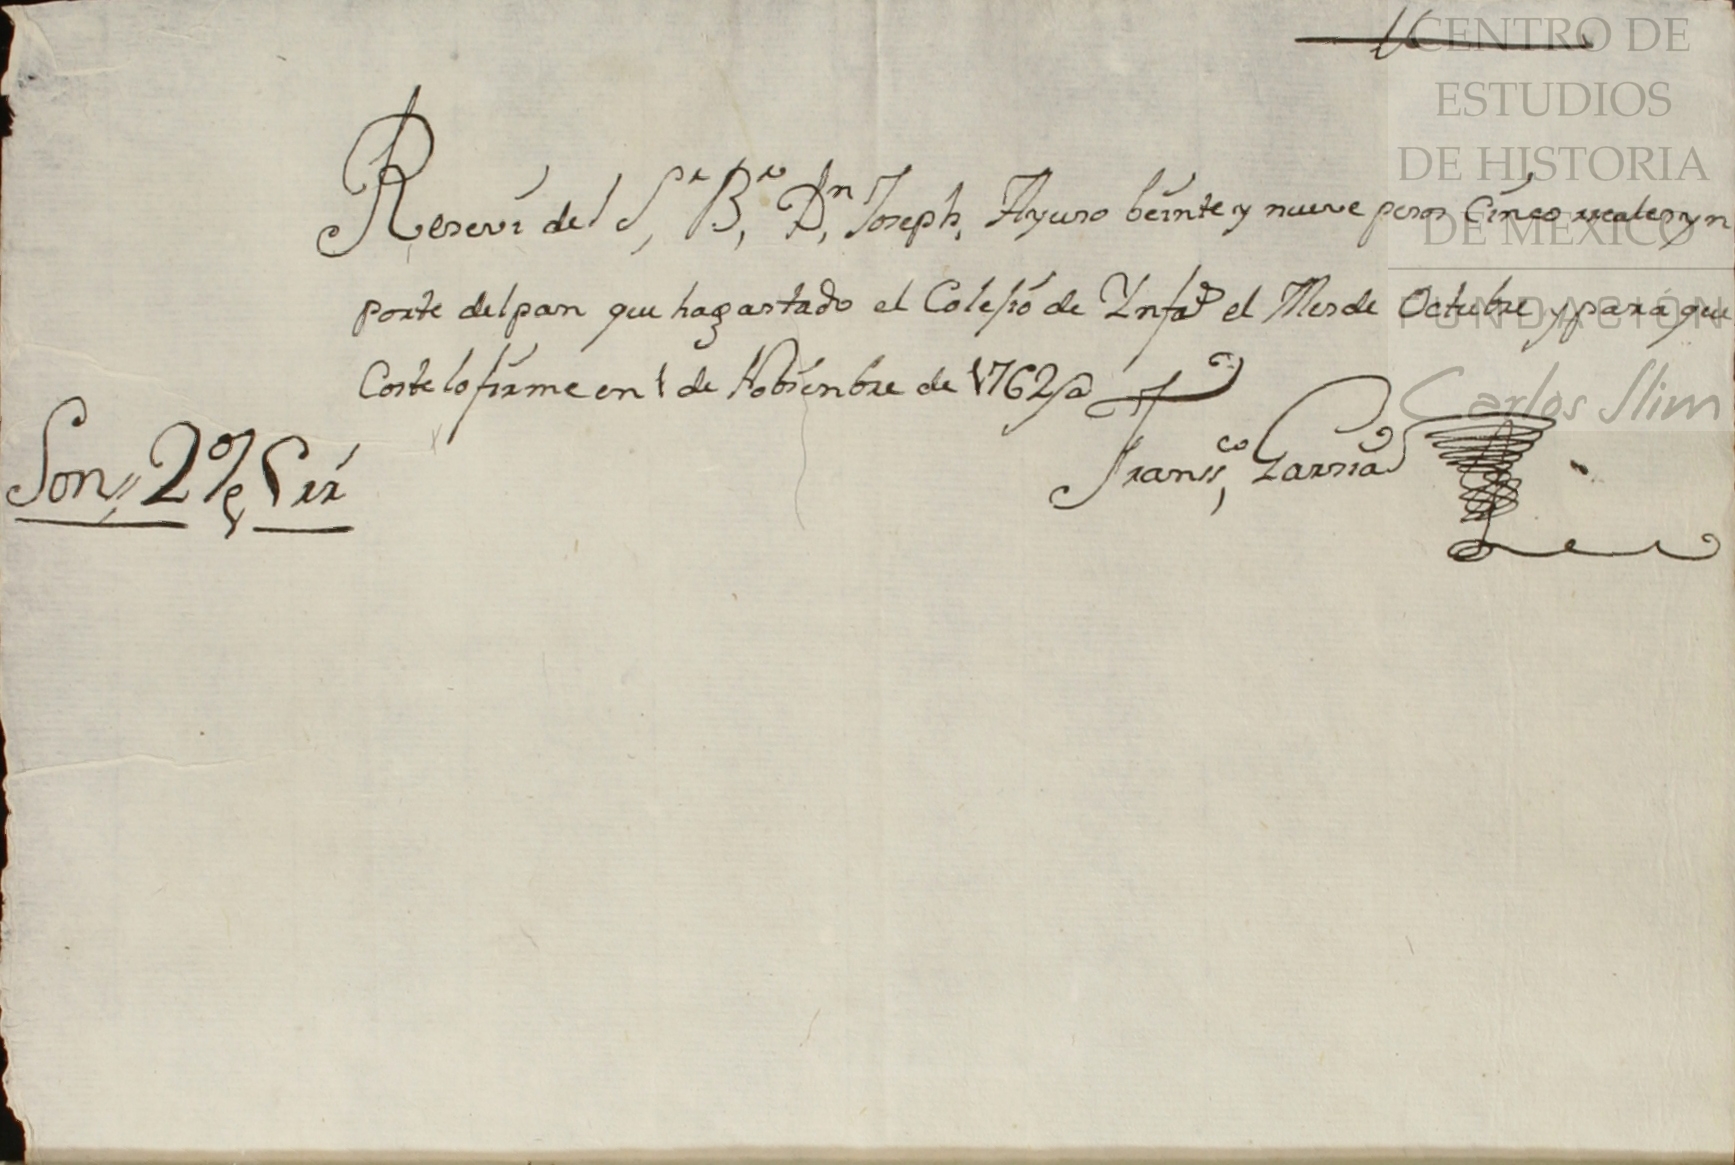 16
Reseví del Sr. Br. Dn. Joseph, Ayuso beinte y nueve pesos Cinco rreales yn
porte del pan que ha gastado el Colejio de Ynfas el Mes de Octubre y para que
Coste lo firme en 1 de Nobienbre de 1762 a
Fransco, Garsia
Son, 29 p 5 rr
CENTRO DE
ESTUDIOS
DE HISTORIA
DE MÉXICO
FUNDACIÓN
Carlos Slim